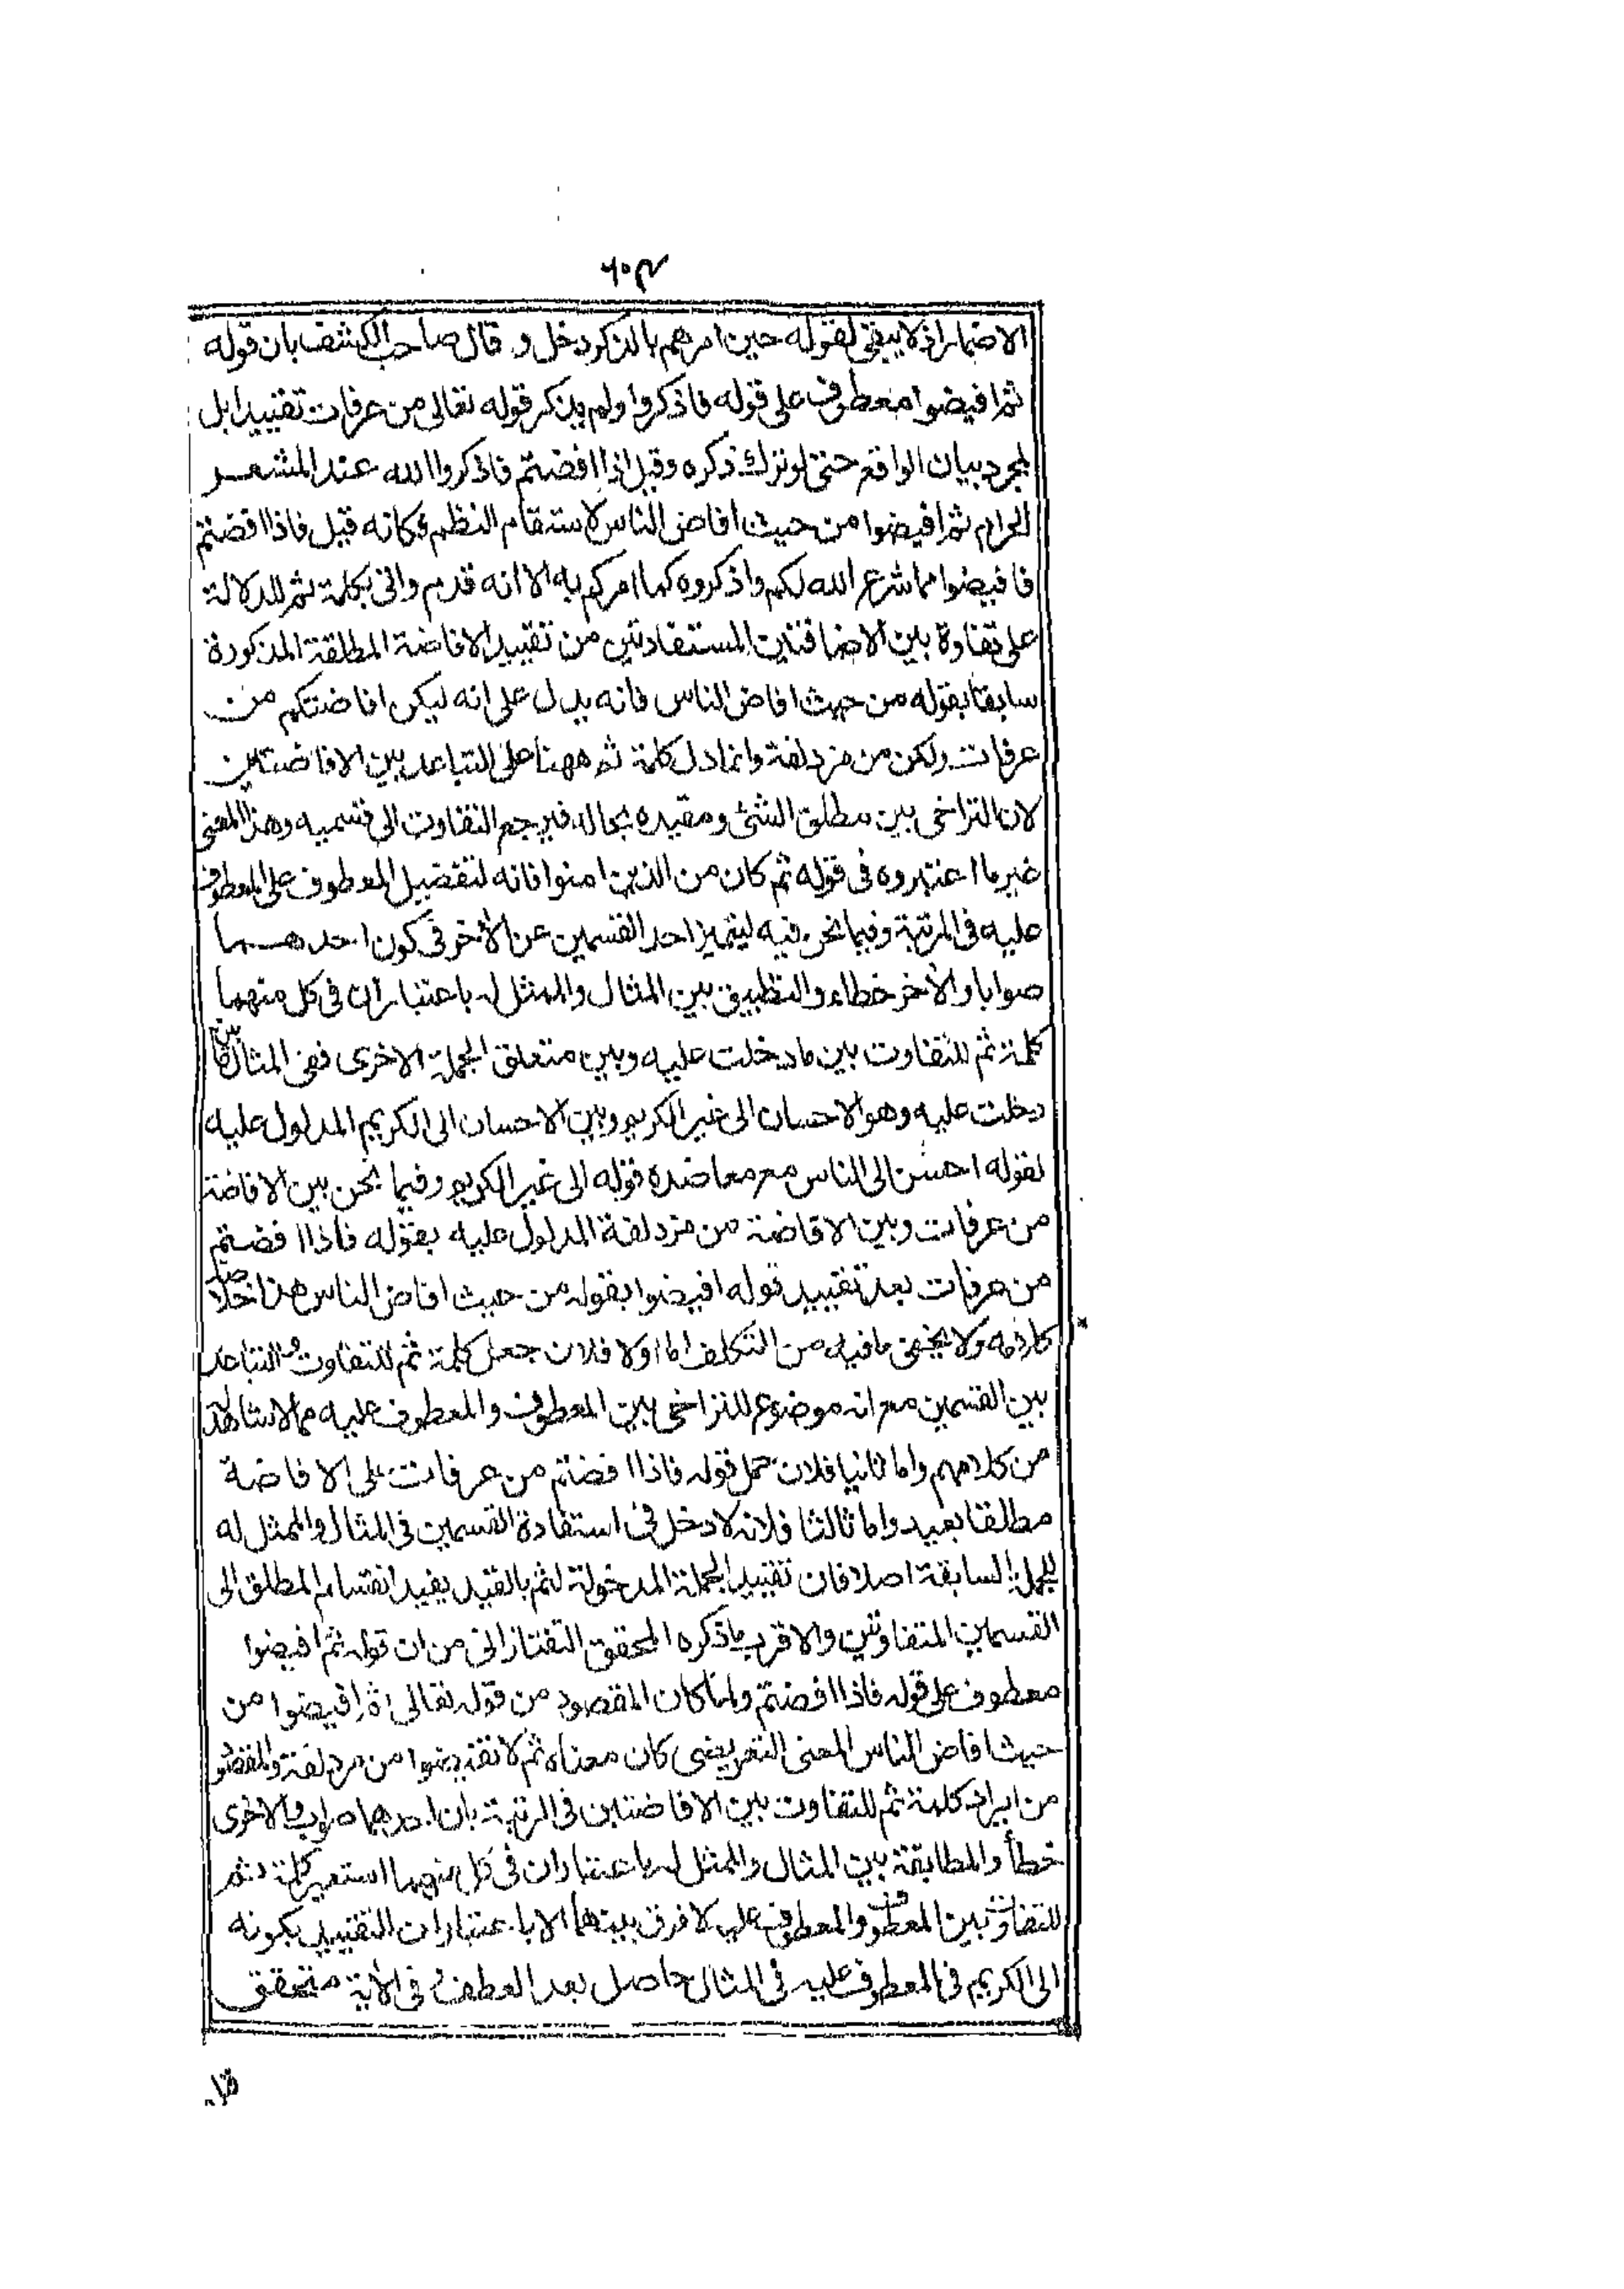 ٦٠٣
الاضمار اذ لا يبقى لقوله حين امرهم بالذكر دخل و قال صاحب الكشف بان قوله
ثم افيضوا معطوف على قوله فاذكروا ولم يذكر قوله تعالى من عرفات تقييدا بل
لمجرد بيان الواقع حتى لو ترك ذكره وقيل اذا افضتم فاذكروا الله عند المشعر
الحرام ثم افيضوا من حيث افاض الناس لاستقام النظم وكانه قيل فاذا افضتم
فافيضوا مما شرع الله لكم واذكروه كما امركم به الا انه قدم واتى بكلمة ثم للدلالة
على تفاوة بين الاضافتين المستفادتين من تقييد الافاضة المطلقة المذكورة
سابقا بقوله من حيث افاض الناس فانه يدل على انه ليكن افاضتكم من
عرفات ولكن من مزدلفة وانما دل كلمة ثم ههنا على التباعد بين الافاضتين
لان التراخى بين مطلق الشئ ومقيده بحاله فيرجع التفاوت الى قسميه وهذا المعنى
غير ما اعتبروه فى قوله ثم كان من الذين امنوا فانه لتفضيل المعطوف على المعطوف
عليه فى المرتبة وفيما نحن فيه ليتميز احد القسمين عن الأخر فى كون احدهما
صوابا والأخر خطاء والتطبيق بين المثال والممثل له باعتبار ان فى كل منهما
كلمة ثم للتفاوت بين ما دخلت عليه وبين متعلق الجملة الاخرى ففى المثال بين ما
دخلت عليه وهو الاحسان الى غير الكريم وبين الاحسان الى الكريم المدلول عليه
بقوله احسن الى الناس مع معاضده قوله الى غير الكريم وفيما نحن بين الافاضة
من عرفات وبين الافاضة من مزدلفة المدلول عليه بقوله فاذا افضتم
من عرفات بعد تقييد قوله افيضوا بقوله من حيث افاض الناس هذا خلاصة
كلامه ولا يخفى ما فيه من التكلف اما اولا فلان جعل كلمة ثم للتفاوت والتباعد
بين القسمين مع انه موضوع للتراخى بين المعطوف والمعطوف عليه مما لا شاهد له
من كلامهم واما ثانيا فلان حمل قوله فاذا افضتم من عرفات على الافاضة
مطلقا بعيد واما ثالثا فلانه لا دخل فى استفادة القسمين فى المثال والممثل له
للجملة السابقة اصلا فان تقييد الجملة المدخولة لثم بالقيد يفيد انقسام المطلق الى
القسمين المتفاوتين والاقرب ما ذكره المحقق التفتازانى من ان قوله ثم افيضوا
معطوف على قوله فاذا افضتم ولما كان المقصود من قوله تعالى ثم افيضوا من
حيث افاض الناس المعنى التعريضى كان معناه ثم لا تفيضوا من مزدلفة والمقصود
من ايراد كلمة ثم للتفاوت بين الافاضتين فى الرتبة بان احدهما صواب والاخرى
خطأ والمطابقة بين المثال والممثل له باعتبار ان فى كل منهما استعير كلمة ثم
للتفاوت بين المعطوف والمعطوف عليه لا فرق بينهما الا باعتبار ان التقييد بكونه
الى الكريم فى المعطوف عليه فى المثال حاصل بعد العطف و فى الأية متحقق